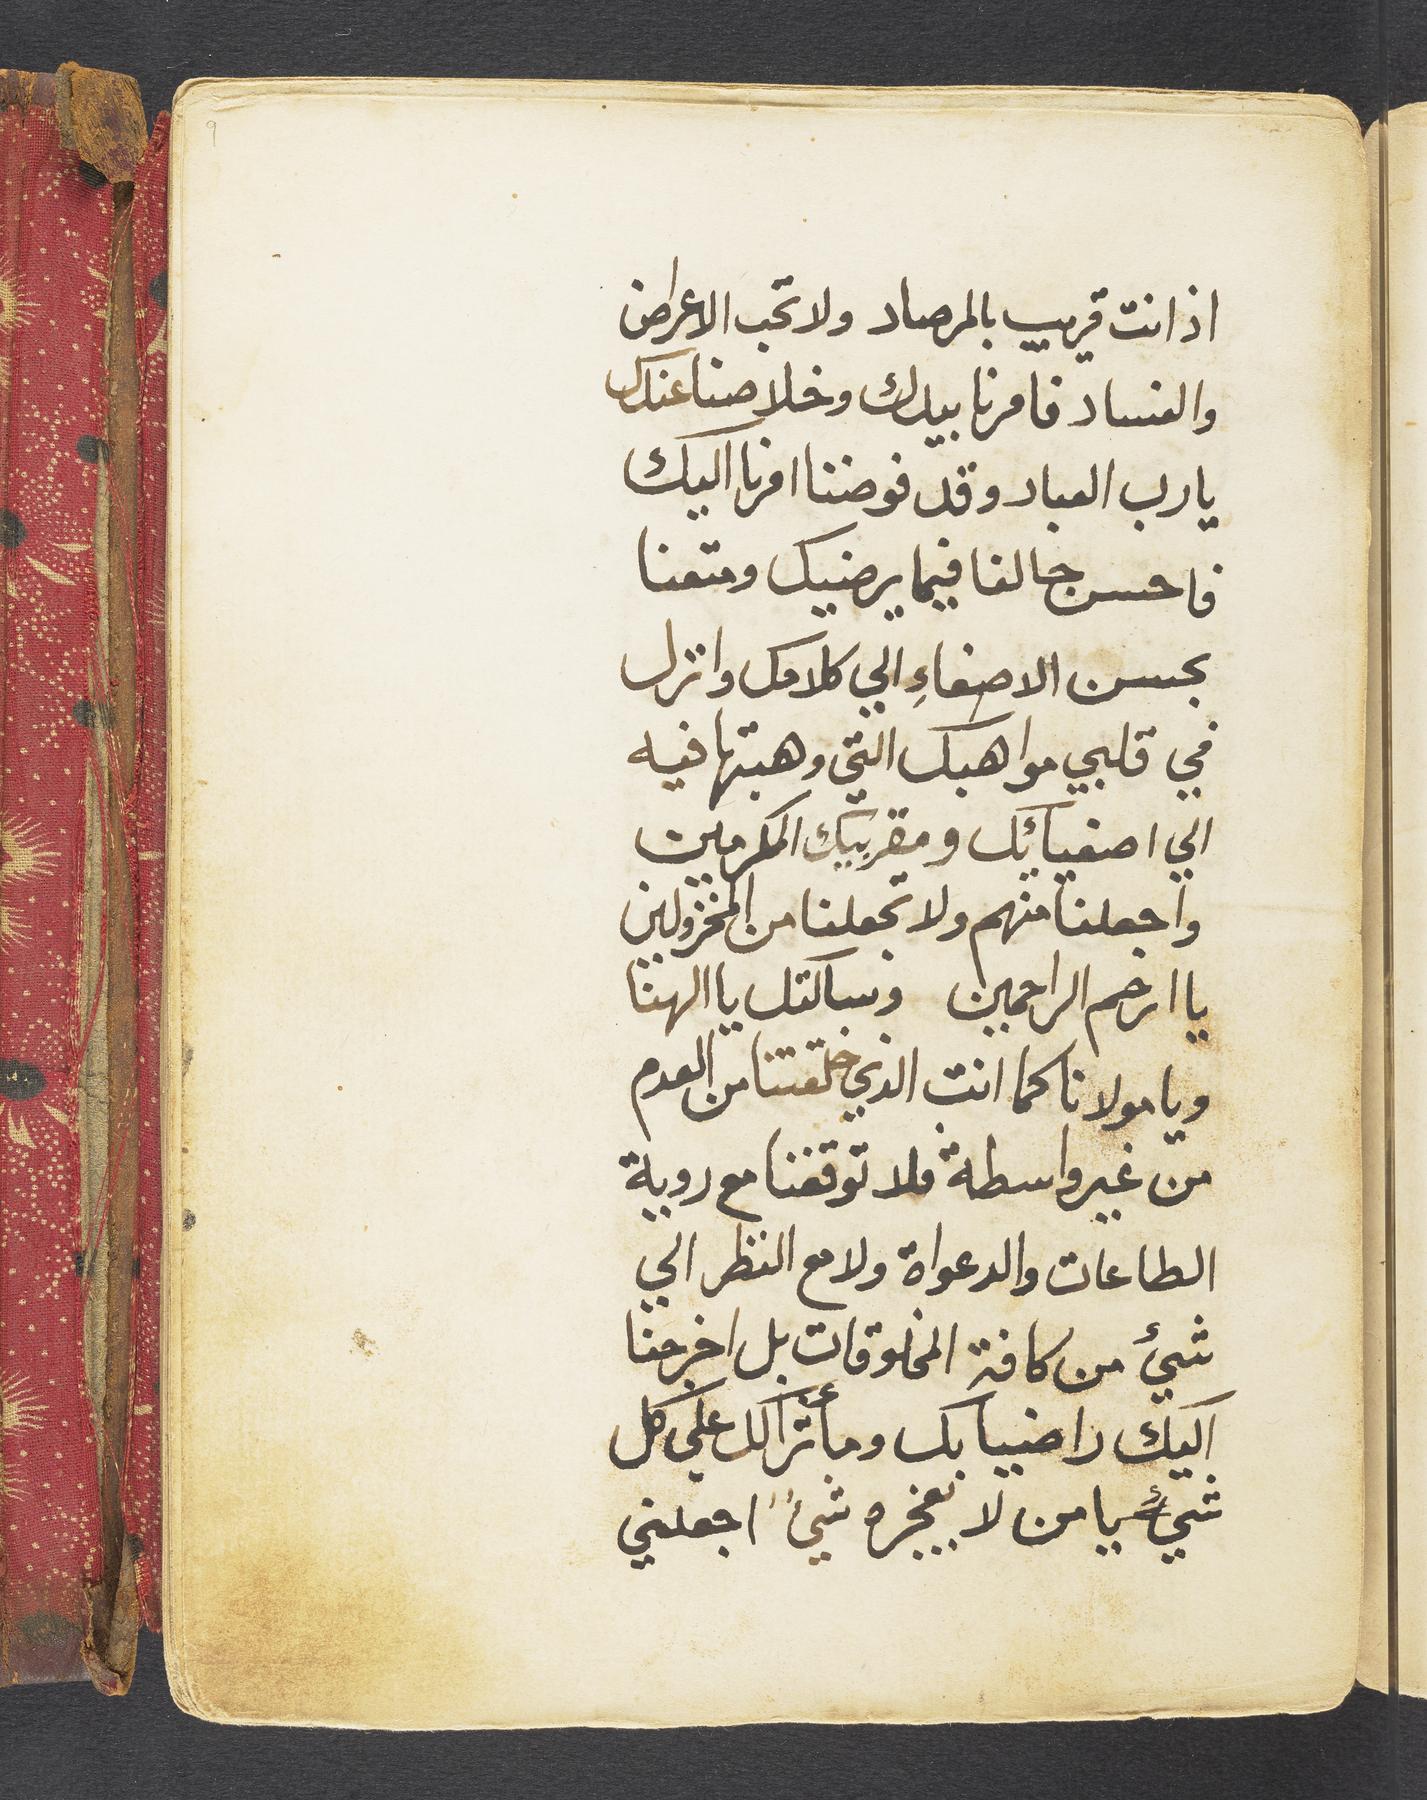 ٩
اذ انت قريب بالمرصاد ولا تحب الاعراض
والفساد فامرنا بيدك وخلاصنا عندك
يا رب العباد وقد فوضنا امرنا اليك
فاحسن حالنا فيما يرضيك ومتعنا
بحسن الاصغاءِ الي كلامك وانزل
في قلبي مواهبك التي وهبتها فيه
الي اصفيائك ومقربيك المكرمين
واجعلنا منهم ولا تجعلنا من المخزولين
يا ارحم الراحمين وسالتك يا الهنا
ويا مولانا كما انت الذي خلقتنا من العدم
من غير واسطة فلا توقفنا مع روية
الطاعات والدعواة ولا مع النظر الي
شئ من كافة المخلوقات بل اخرجنا
اليك راضيا بك ومأثرا لك علي كل
شئ يا من لا يعجزه شئ اجعلني